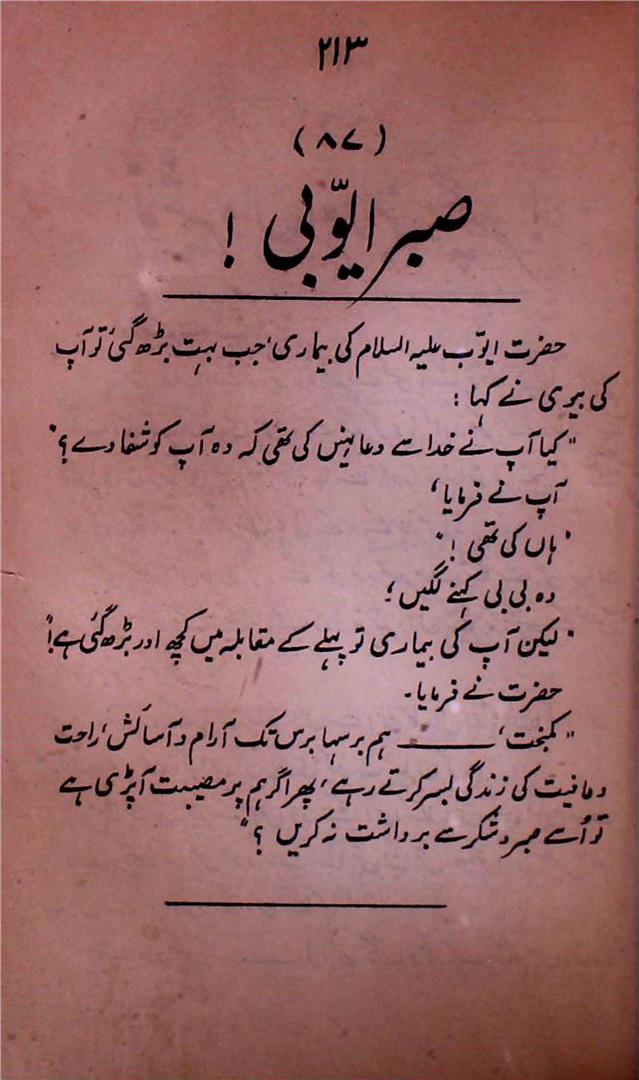 ۲۱۳
(۸۷)
صبر ایوّبی !
حضرت ایوّب علیہ السلام کی بیماری، جب بہت بڑھ گئی، تو آپ
کی بیوی نے کہا :
"کیا آپ نے خدا سے دعا نہیں کی تھی کہ وہ آپ کو شفا دے ؟"
آپ نے فرمایا،
"ہاں کی تھی !"
وہ بی بی کہنے لگیں ؛
"لیکن آپ کی بیماری تو پہلے کے مقابلہ میں کچھ اور بڑھ گئی ہے!"
حضرت نے فرمایا۔
"کمبخت، ——— ہم برسہا برس تک آرام و آسائش، راحت
و عافیت کی زندگی بسر کرتے رہے، پھر اگر ہم پر مصیبت آ پڑی ہے
تو اُسے صبر و شکر سے برداشت نہ کریں ؟"